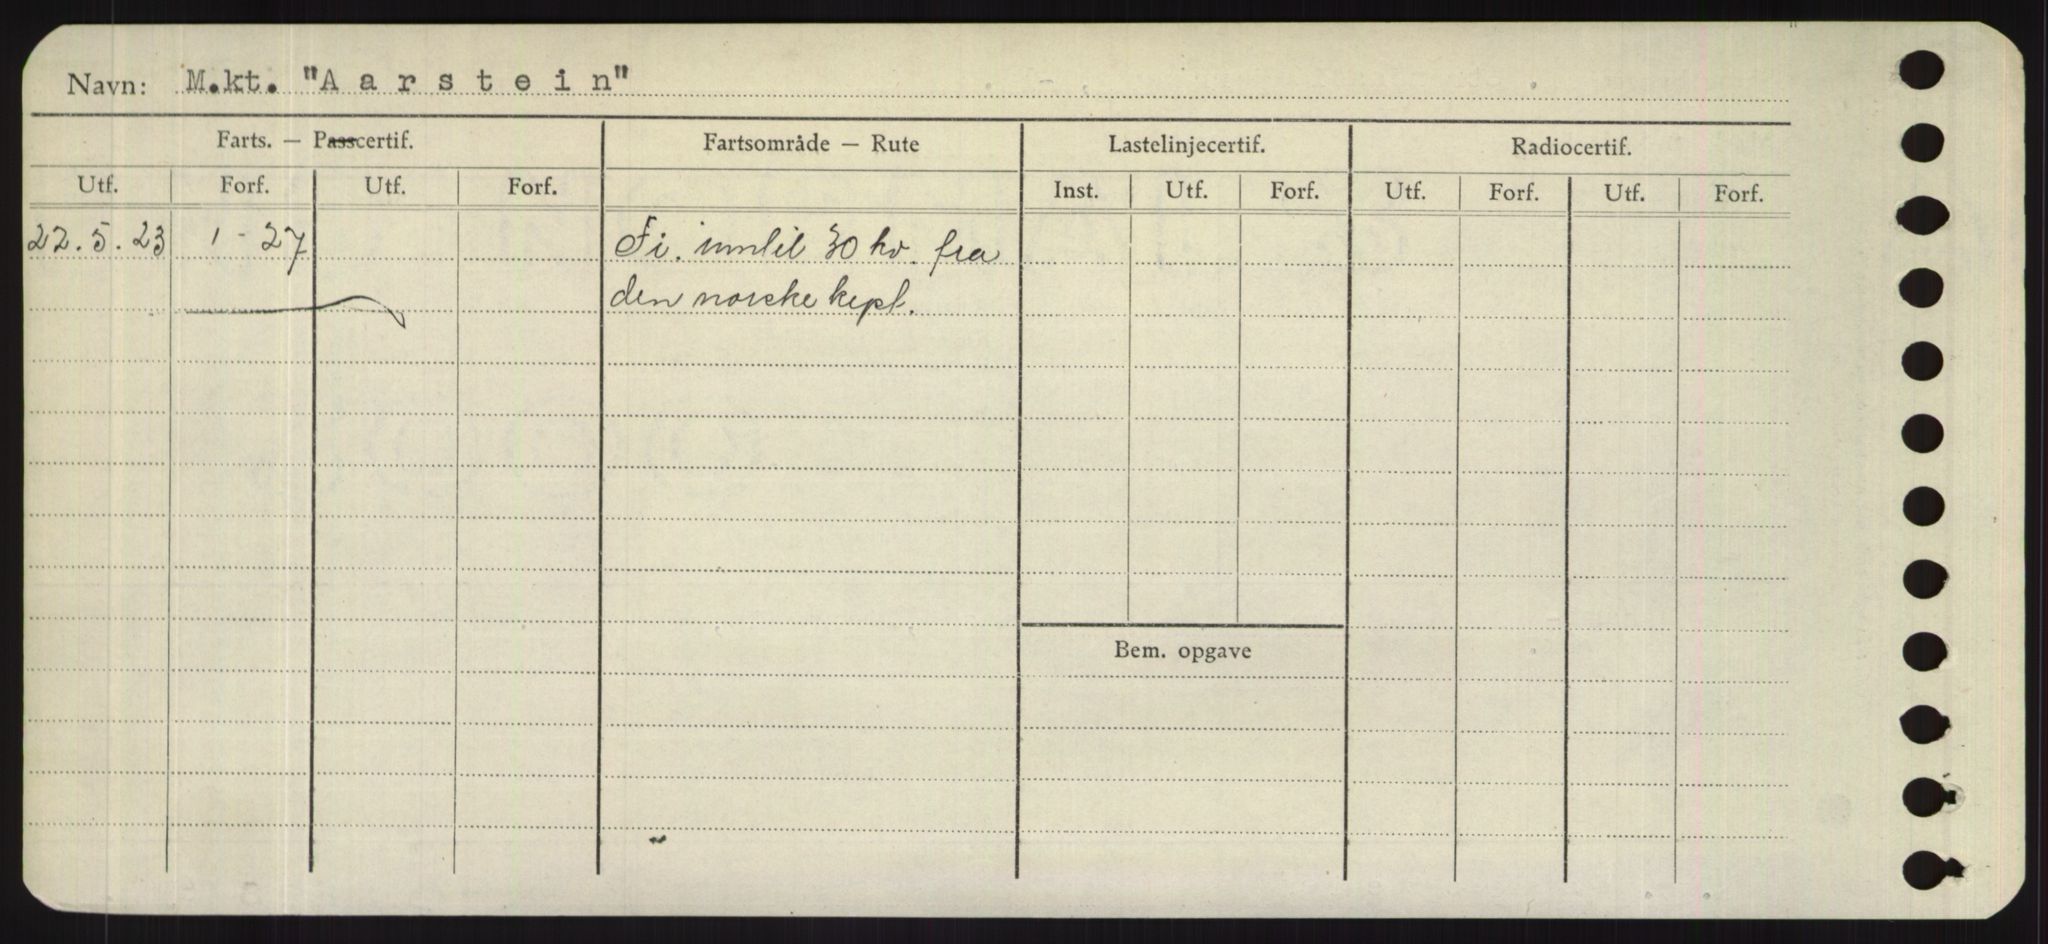 Navn: M.kt. "Aarstein"
Farts. — Passcertif. Fartsområde — Rute Lastelinjecertif. Radiocertif.
Utf. Forf. Utf. Forf. Inst. Utf. Forf. Utf. Forf. Utf. Forf.
22.5.23 1-27 Fi. inntil 30 kv. fra
den norske kyst.
Bem. opgave